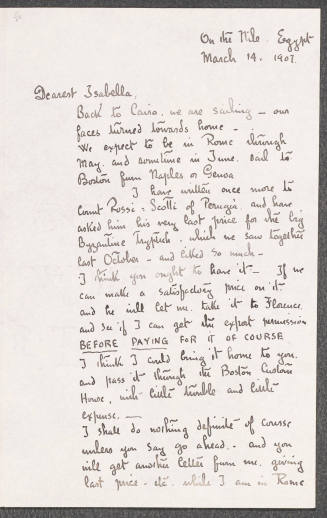 On the Nile. Egypt
March 14. 1907.
Dearest Isabella,
Back to Cairo, we are sailing – our
faces turned towards home –
We expect to be in Rome through
May. and sometime in June. sail to
Boston from Naples or Genoa
I have written once more to
Count Rossi = Scotti of Perugia. and have
asked him his very last price for the big
Byzantine Tryptich. which we saw together
last October – and liked so much –
I think you ought to have it – If we
can make a satisfactory price on it
and he will let me. take it to Florence.
and see if I can get the export permission
BEFORE PAYING FOR IT OF COURSE
I think I could bring it home to you.
and pass it through the Boston Custom
House, with little trouble and little
expense. –
I shall do nothing definite of course
unless you say go ahead. – and you
will get another letter from me. giving
last price – etc. while I am in Rome